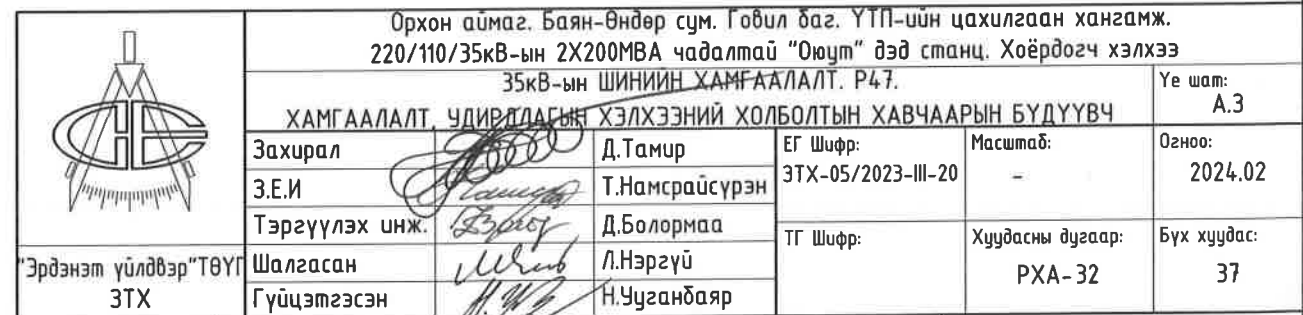 Орхон аймаг. Баян-Өндөр сум. Говил баг. ҮТП-ийн цахилгаан хангамж.
220/110/35кВ-ын 2Х200МВА чадалтай "Оюут" дэд станц. Хоёрдогч хэлхээ
35кВ-ын ШИНИЙН ХАМГААЛАЛТ. Р47.
ХАМГААЛАЛТ, УДИРДЛАГЫН ХЭЛХЭЭНИЙ ХОЛБОЛТЫН ХАВЧААРЫН БҮДҮҮВЧ
Үе шат:
А.3
Захирал Д.Тамир
З.Е.И Т.Намсрайсүрэн
Тэргүүлэх инж. Д.Болормаа
Шалгасан Л.Нэргүй
Гүйцэтгэсэн Н.Ууганбаяр
ЕГ Шифр:
ЗТХ-05/2023-III-20
Масштаб:
-
Огноо:
2024.02
ТГ Шифр:
Хуудасны дугаар:
РХА-32
Бүх хуудас:
37
"Эрдэнэт үйлдвэр"ТӨҮГ
ЗТХ